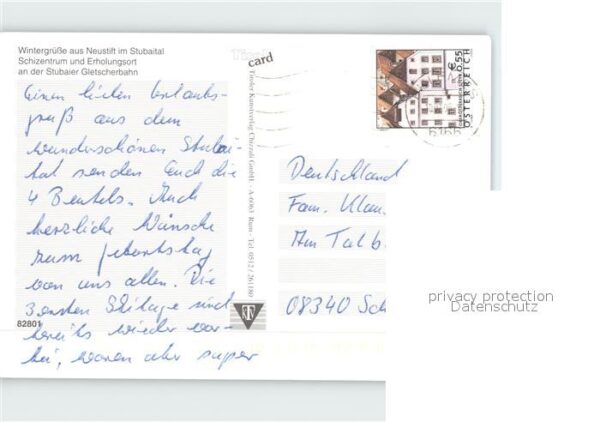 Wintergrüße aus Neustift im Stubaital
Schizentrum und Erholungsort
an der Stubaier Gletscherbahn
Tirol
card
Einen lieben Urlaubs-
gruß aus dem
wunderschönen Stubai-
tal senden Euch die
4 Beutels. Auch
herzliche Wünsche
zum Geburtstag
von uns allen. Die
3 ersten Skitage sind
bereits wieder vor-
bei, waren aber super
82801
Tiroler Kunstverlag Chizzali GmbH, A-6063 Rum - Tel. 0512 / 261180
€ 0,55
ÖSTERREICH
Deutschland
Fam. Klau
Am Talb
08340 Sch
privacy protection
Datenschutz